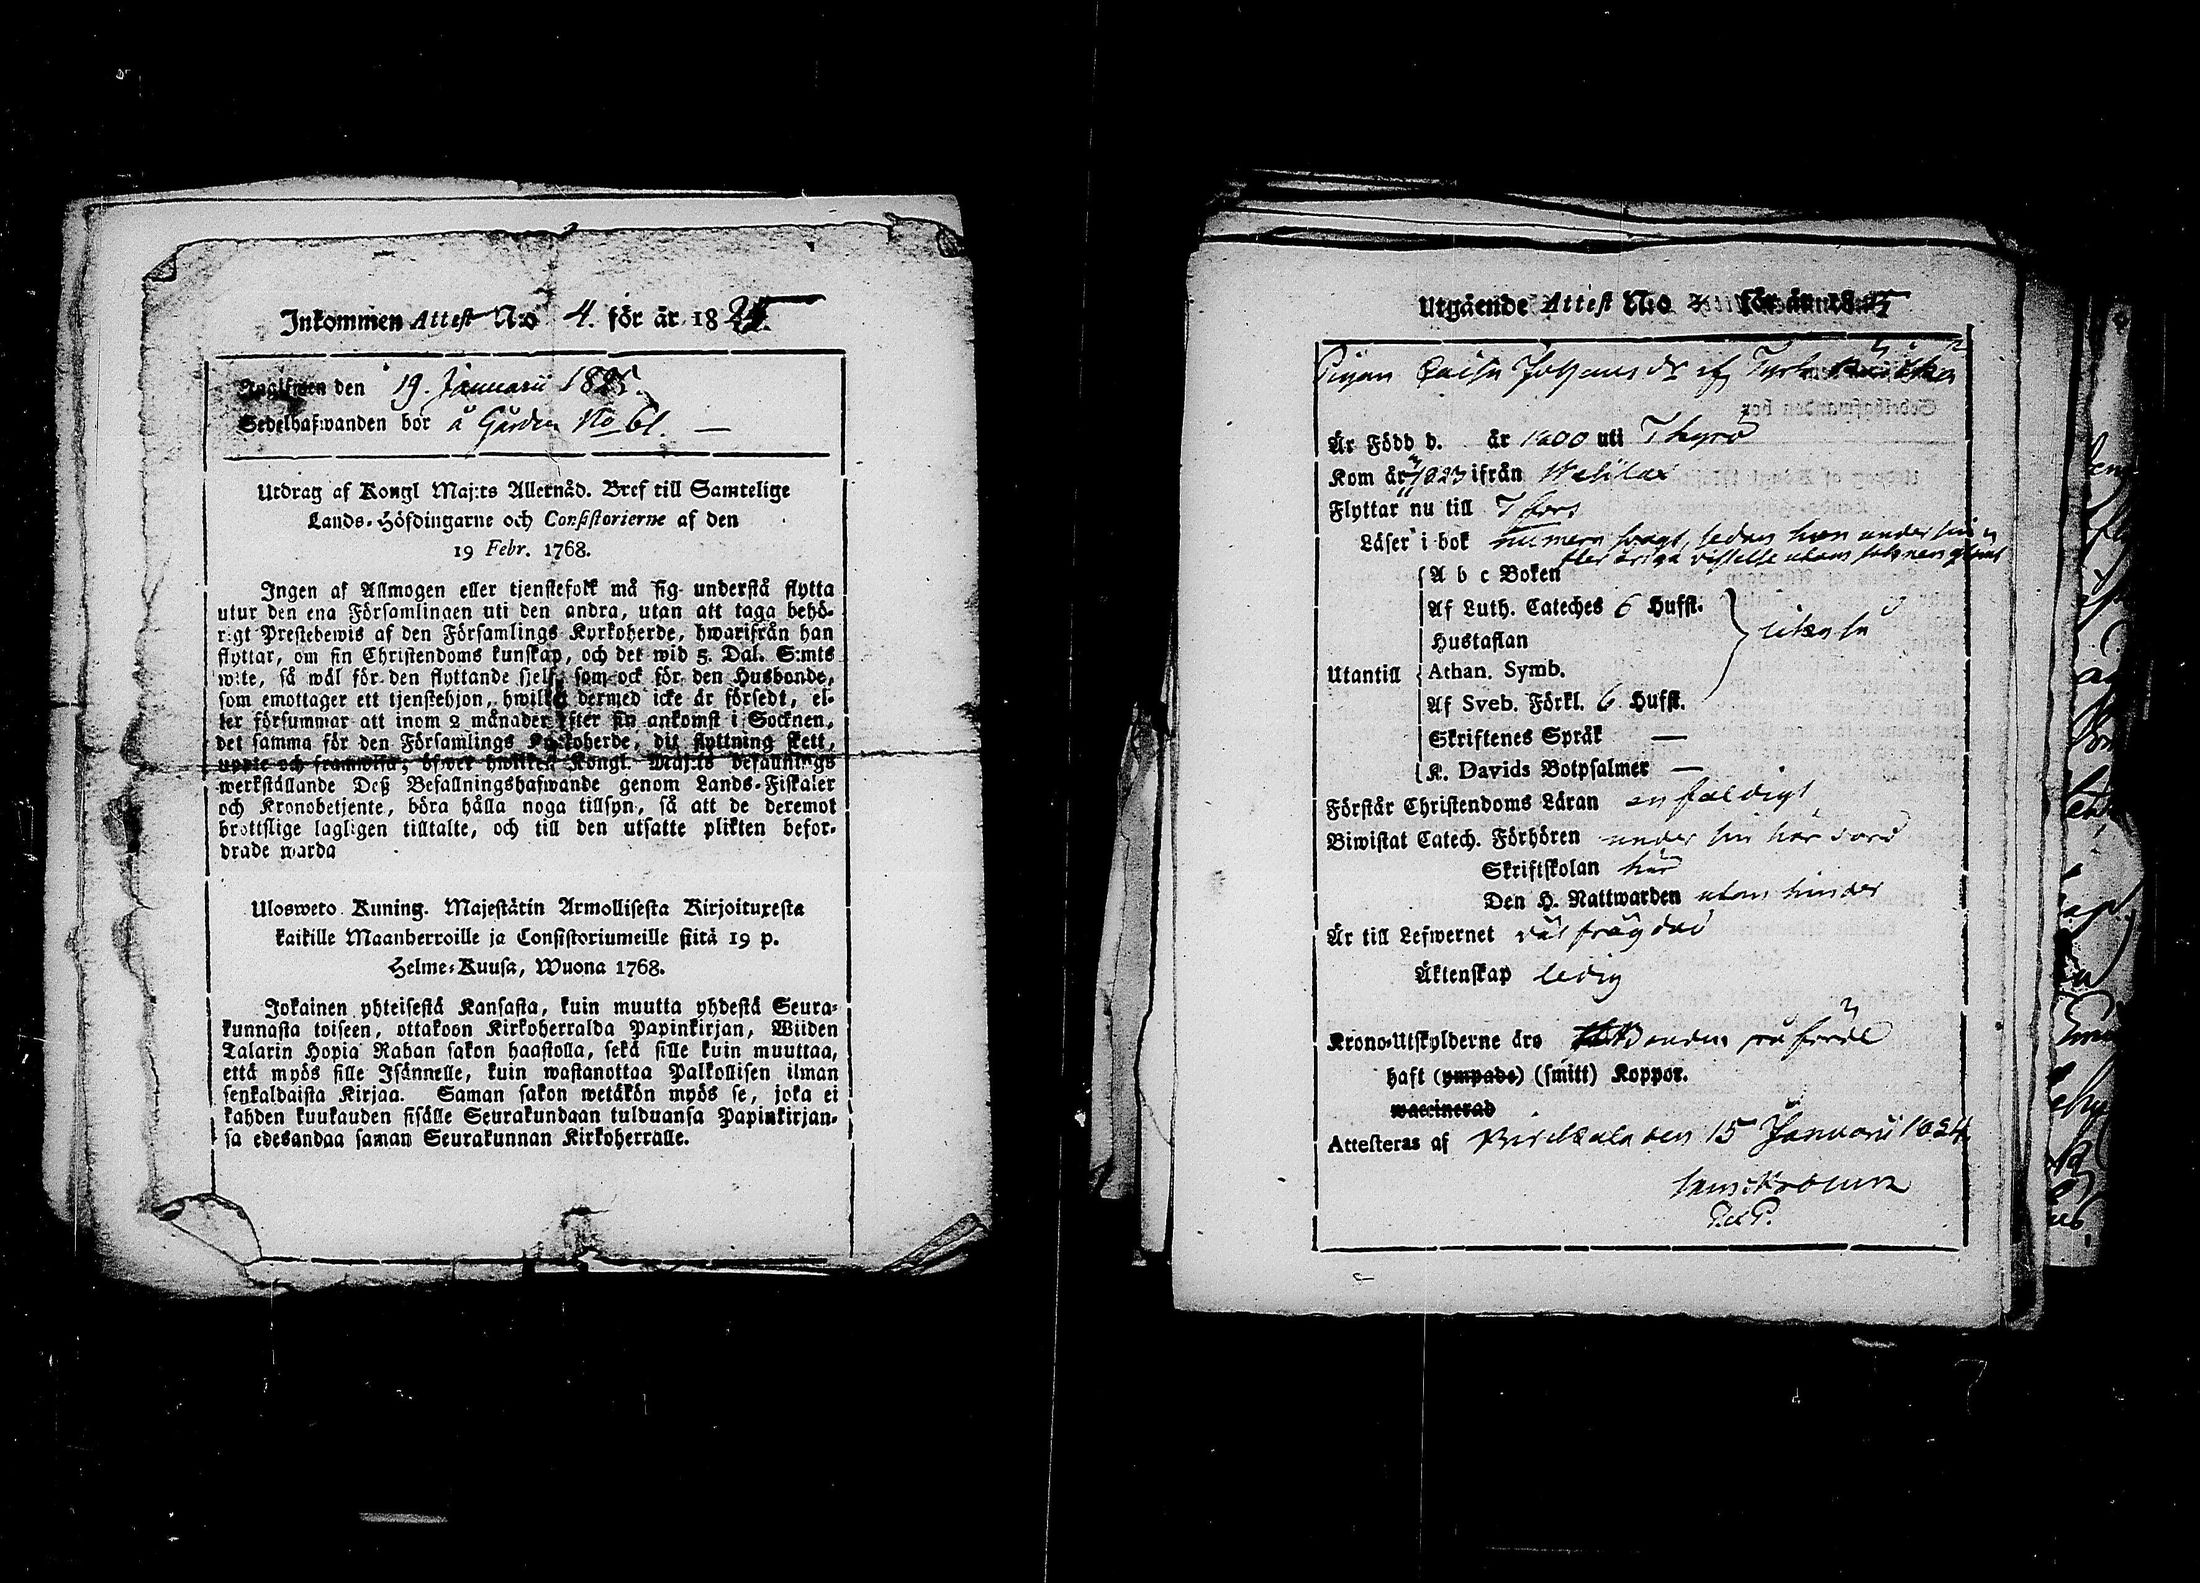 Inkommen Attest N:o 4. för år 1825
Anglfwen den 19. Januarii 1825.
Sedelhafwanden bor å Gården No 61. —
Utdrag af Kongl Maj:ts Allernåd. Bref till Samtelige
Lands-Höfdingarne och Consistorierne af den
19 Febr. 1768.
Ingen af Allmogen eller tjenstefolk må sig understå flytta
utur den ena Församlingen uti den andra, utan att taga behö-
rigt Prestebewis af den Församlings Kyrkoherde, hwarifrån han
flyttar, om sin Christendoms kunskap, och det wid 5. Dal. S:mts
wite, så wäl för den flyttande sjelf, som ock för den Husbonde,
som emottager ett tjenstehjon, hwilket dermed icke är försedt, el-
ler försummar att inom 2 månader efter sin ankomst i Socknen,
det samma för den Församlings Kyrkoherde, dit flyttning skett,
uppte och framwisa; öfwer hwilket Kongl. Maj:ts befallnings
werkställande Deß Befallningshafwande genom Lands-Fiskaler
och Kronobetjente, böra hålla noga tillsyn, så att de deremot
brottslige lagligen tilltalte, och till den utsatte plikten befor-
drade warda
Ulosweto Kuning. Majestätin Armollisesta Kirjoituxesta
kaikille Maanherroille ja Consistoriumeille siitä 19 p.
Helme-Kuusa, Wuona 1768.
Jokainen yhteisestä Kansasta, kuin muutta yhdestä Seura-
kunnasta toiseen, ottakoon Kirkoherralda Papinkirjan, Wiiden
Talarin Hopia Rahan sakon haastolla, sekä sille kuin muuttaa,
että myös sille Isännelle, kuin wastanottaa Palkollisen ilman
senkaldaista Kirjaa. Saman sakon wetäkön myös se, joka ei
kahden kuukauden sisälle Seurakundaan tulduansa Papinkirjan-
sa edesandaa saman Seurakunnan Kirkoherralle.
Utgående Attest N:o för år 18
Pigan Caisa Johansdr af
Är Född d. år 1800 uti Thyrö
Kom år 1823 ifrån Wesilax
Flyttar nu till Tfors
Läser i bok numera swagt, sedan hon under sin
fleråriga vistelse utom soknen glömt
A b c Boken
Af Luth. Cateches 6 Hufst.
Hustaflan
Utantill Athan. Symb.
Af Sveb. Förkl. 6 Hufst.
Skriftenes Språk —
K. Davids Botpsalmer —
Förstår Christendoms Läran enfaldigt
Biwistat Catech. Förhören under sin här varo
Skriftskolan här
Den H. Nattwarden utan hinder
Är till Lefwernet väl frägdad
Äktenskap ledig
Krono-Utskylderne äro
haft (ympade) (smitt) Koppor.
waccinerad
Attesteras af Birckala den 15 Januarii 1824
P. et P.